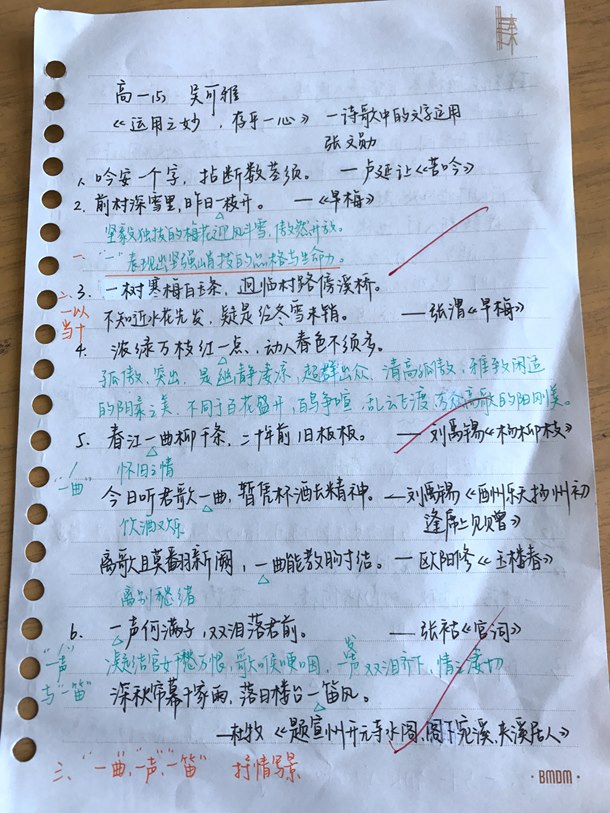 高一(5) 吴可雅
《运用之妙,存乎一心》 —诗歌中的文字运用
张文勋
1. 吟安一个字,拈断数茎须。 —卢延让《苦吟》
2. 前村深雪里,昨日一枝开。 —《早梅》
坚毅独枝的梅花迎风斗雪,傲然开放。
一、
"一"表现出坚强峭拔的品格与生命力。
二、
3. 一树寒梅白玉条,迥临村路傍溪桥。
一以当十
不知近水花先发,疑是经冬雪未销。 —张渭《早梅》
4. 浓绿万枝红一点,动人春色不须多。
孤傲、突出,是幽静凄凉,超群出众,清高孤傲,雅致闲适
的阴柔之美,不同于百花盛开,百鸟争喧,乱云飞渡,的阳刚美。
5. 春江一曲柳千条,二十年前旧板板。 —刘禹锡《杨柳枝》
"一曲"
怀旧之情
今日听君歌一曲,暂凭杯酒长精神。 —刘禹锡《酬州乐天扬州初
逢席上见赠》
饮酒
离歌且莫翻新阕,一曲能教肠寸结。 —欧阳修《玉楼春》
离别愁绪
6. 一声何满子,双泪落君前。 —张祜《宫词》
"一声"
与"一笛"
凝结宫女千愁万恨,歌喉哽咽,一发声双泪齐下,情之凄切
深秋帘幕千家雨,落日楼台一笛风。
—杜牧《题宣州开元寺水阁,阁下宛溪,夹溪居人》
三、"一曲、""一声、""一笛" 抒情写景
BMDM